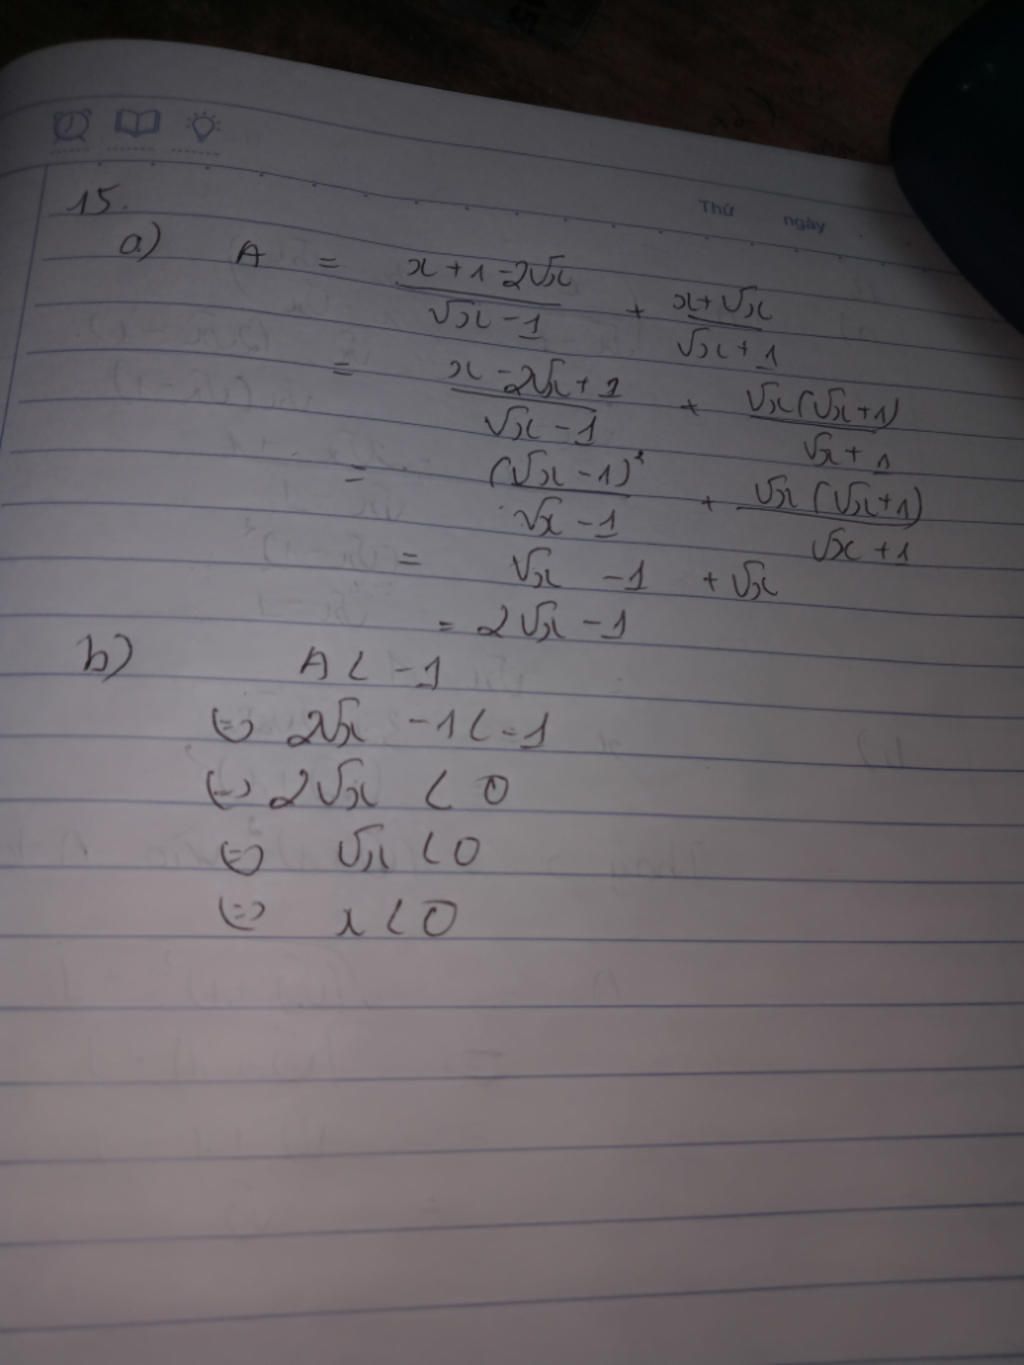 Thứ ngày
15.
a) A = x + 1 - 2√x / √x - 1 + x + √x / √x + 1
= x - 2√x + 1 / √x - 1 + √x(√x + 1) / √x + 1
= (√x - 1)² / √x - 1 + √x(√x + 1) / √x + 1
= √x - 1 + √x
= 2√x - 1
b) A < -1
(=) 2√x - 1 < -1
(=) 2√x < 0
(=) √x < 0
(=) x < 0